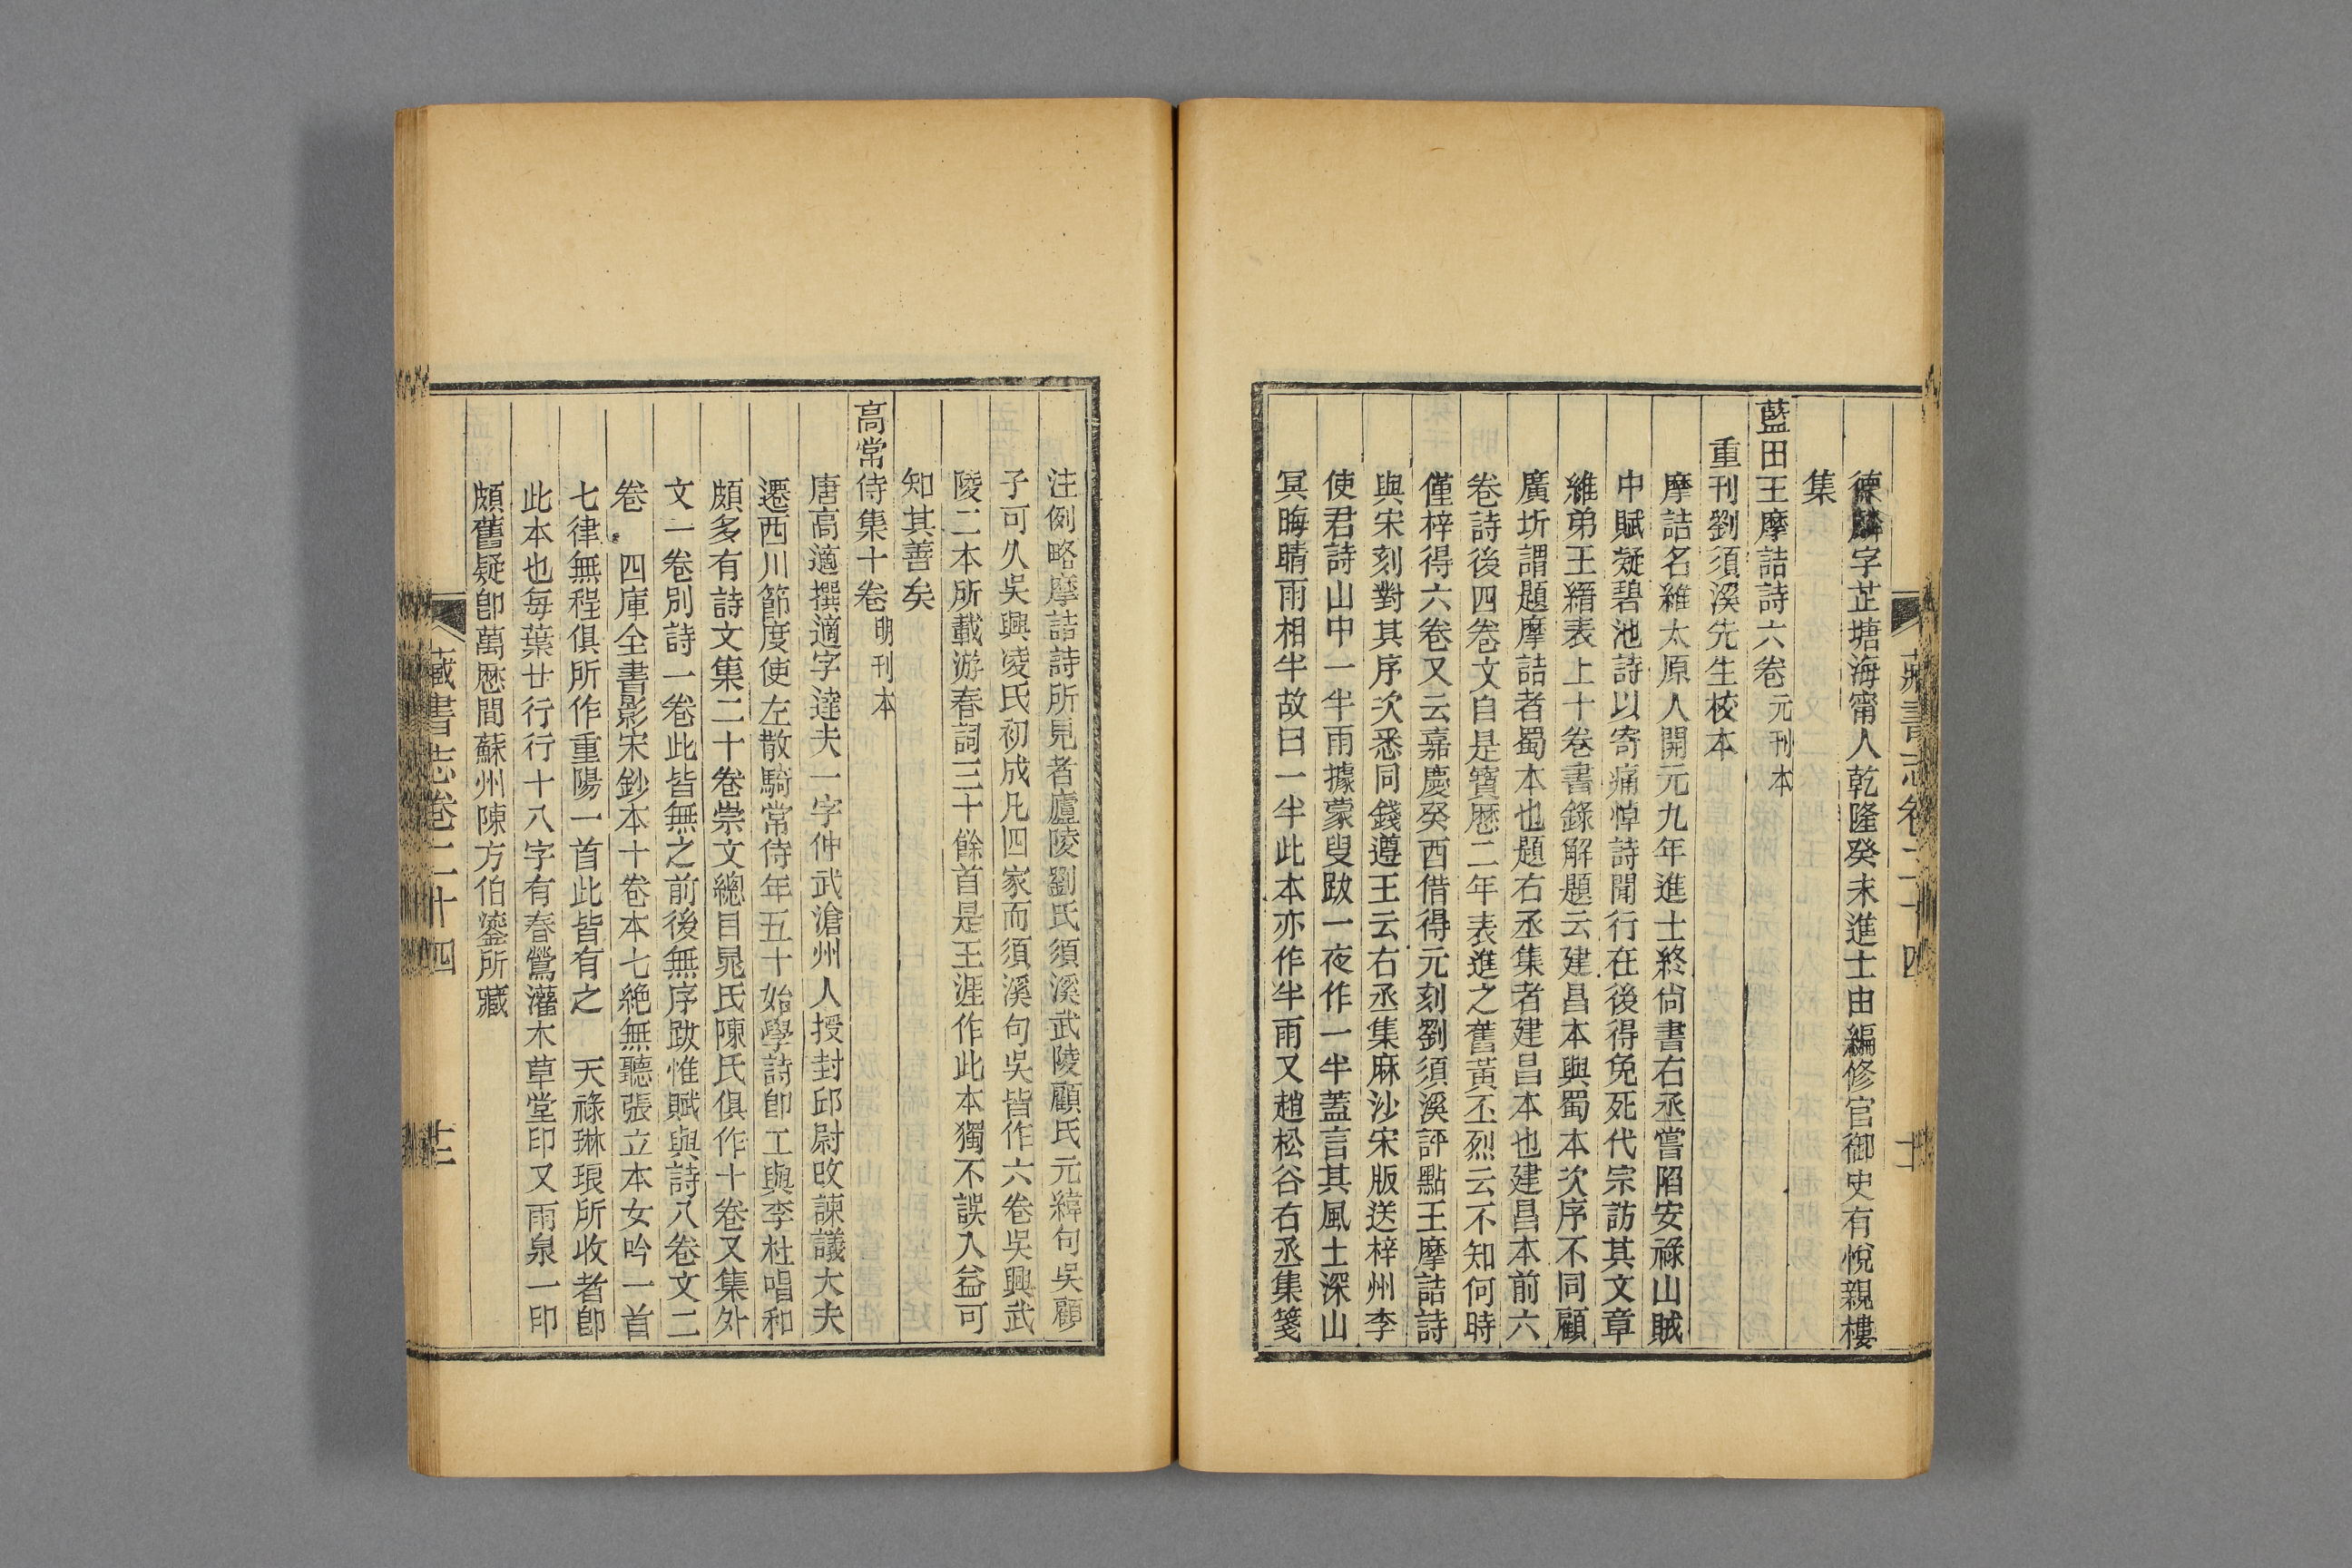 德麟字芷塘海甯人乾隆癸未進士由編修官御史有悅親樓
集
藍田王摩詰詩六卷 元刊本
重刊劉須溪先生校本
摩詰名維太原人開元九年進士終尙書右丞嘗陷安祿山賊
中賦凝碧池詩以寄痛悼詩聞行在後得免死代宗訪其文章
維弟王縉表上十卷書錄解題云建昌本與蜀本次序不同顧
廣圻謂題摩詰者蜀本也題右丞集者建昌本也建昌本前六
卷詩後四卷文自是寶厯二年表進之舊黃丕烈云不知何時
僅梓得六卷又云嘉慶癸酉借得元刻劉須溪評點王摩詰詩
與宋刻對其序次悉同錢遵王云右丞集麻沙宋版送梓州李
使君詩山中一半雨據蒙叟跋一夜作一半蓋言其風土深山
冥晦晴雨相半故曰一半此本亦作半雨又趙松谷右丞集箋
藏書志卷二十四
注例略摩詰詩所見者廬陵劉氏須溪武陵顧氏元緯句吳顧
子可久吳興凌氏初成凡四家而須溪句吳皆作六卷吳興武
陵二本所載游春詞三十餘首是王涯作此本獨不誤入益可
知其善矣
高常侍集十卷 明刊本
唐高適撰適字達夫一字仲武滄州人授封邱尉攺諫議大夫
遷西川節度使左散騎常侍年五十始學詩卽工與李杜唱和
頗多有詩文集二十卷崇文總目晁氏陳氏俱作十卷又集外
文一卷別詩一卷此皆無之前後無序跋惟賦與詩八卷文二
卷 四庫全書影宋鈔本十卷本七絶無聽張立本女吟一首
七律無程俱所作重陽一首此皆有之 天祿琳琅所收者卽
此本也每葉廿行行十八字有春鶯灌木草堂印又雨泉一印
頗舊疑卽萬厯間蘇州陳方伯鎏所藏
藏書志卷二十四